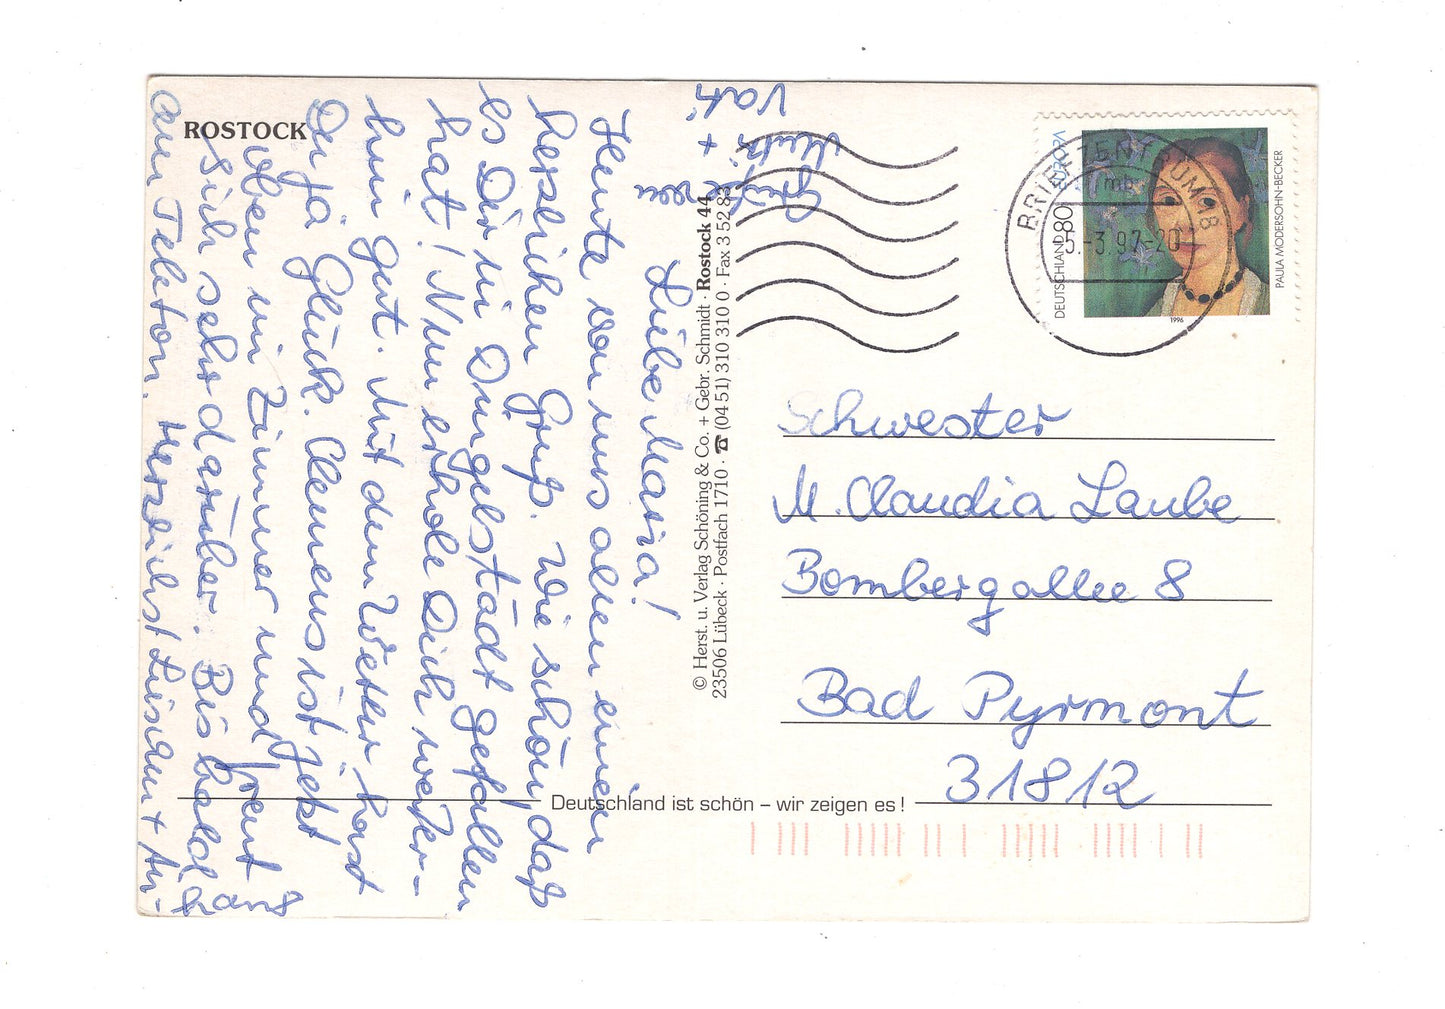 ROSTOCK
Liebe Maria!
Heute von uns allen einen
herzlichen Gruß. Wie schön, daß
es Dir in Dingelstädt gefallen
hat! Nun erhole Dich weiter-
hin gut. Mit dem Wetter hast
Du ja Glück. Clemens ist jetzt
oben im Zimmer und freut
sich sehr darüber. Bis bald
am Telefon. Herzlichst
Mutti +
Vati
© Herst. u. Verlag Schöning & Co. + Gebr. Schmidt · Rostock 44
23506 Lübeck · Postfach 1710 · ☎ (04 51) 310 310 0 · Fax 3 52 83
BRIEFZENTRUM 18
mb
5.-3.97-20
DEUTSCHLAND 80 EUROPA
PAULA MODERSOHN-BECKER
1996
Schwester
M. Claudia Laube
Bombergallee 8
Bad Pyrmont
31812
Deutschland ist schön – wir zeigen es!